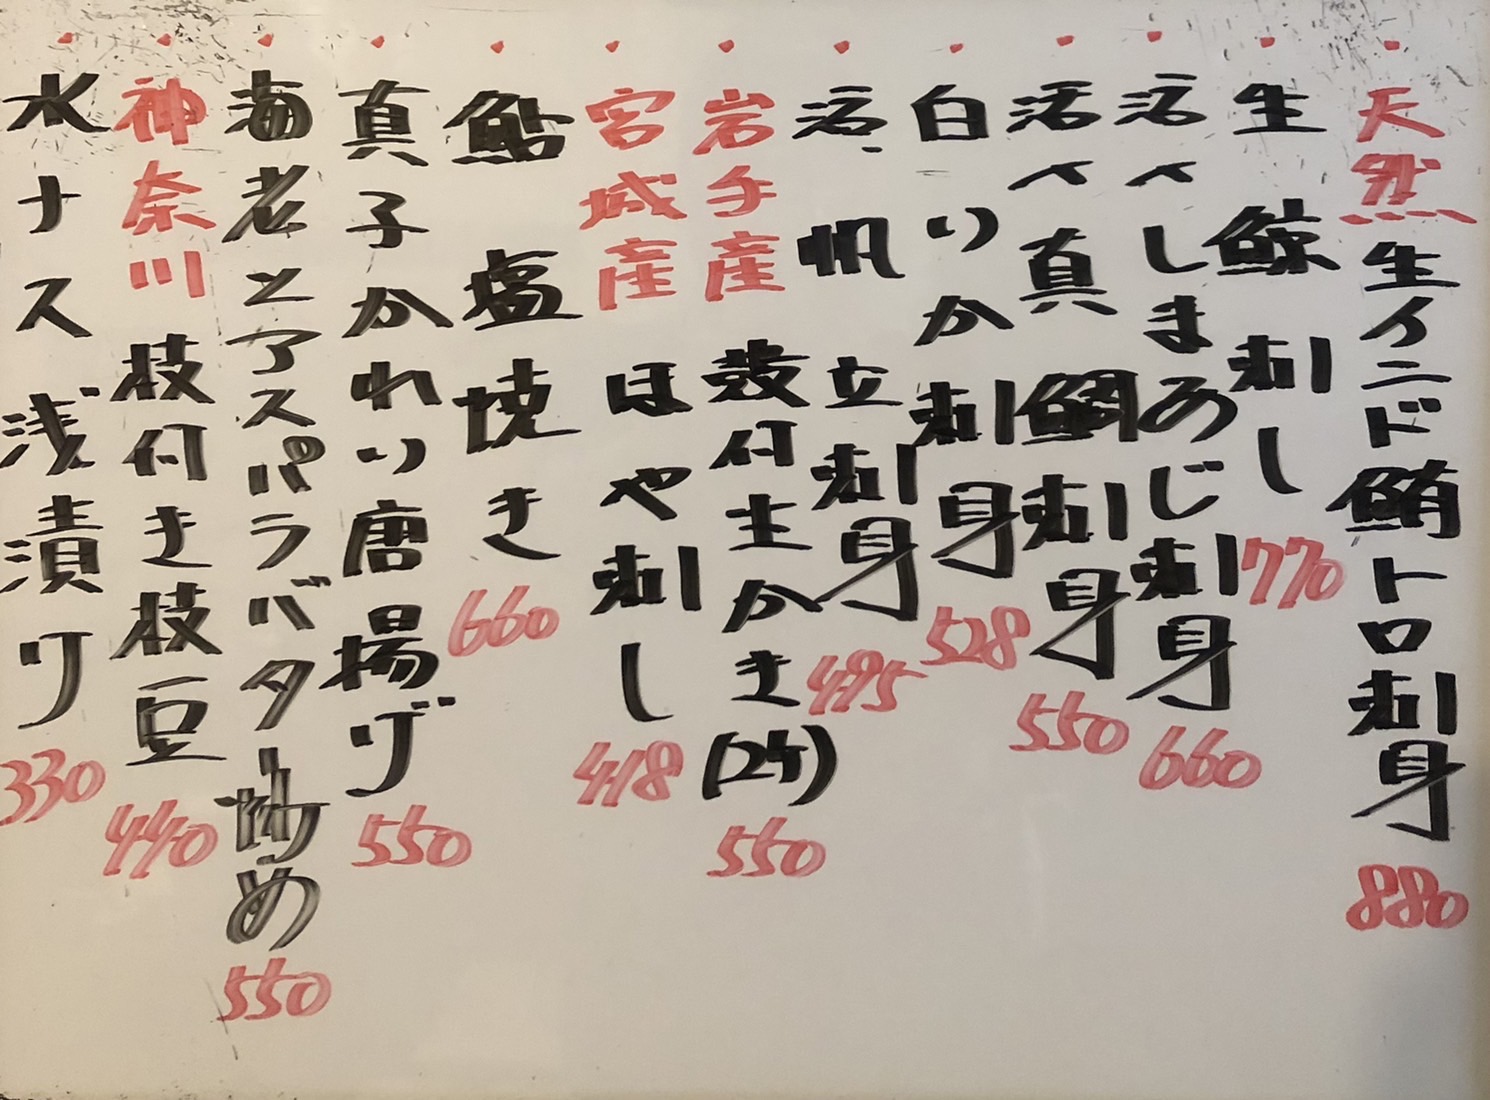 ・天然生インド鮪トロ刺身 880
・生鯨刺し 770
・活〆しまあじ刺身 660
・活〆真鯛刺身 550
・白いか刺身 528
・活帆立刺身 495
・岩手産殻付生かき(2ケ) 550
・宮城産ほや刺し 418
・鮎塩焼き 660
・真子かれい唐揚げ 550
・海老とアスパラバター炒め 550
・神奈川枝付き枝豆 440
・水ナス浅漬り 330